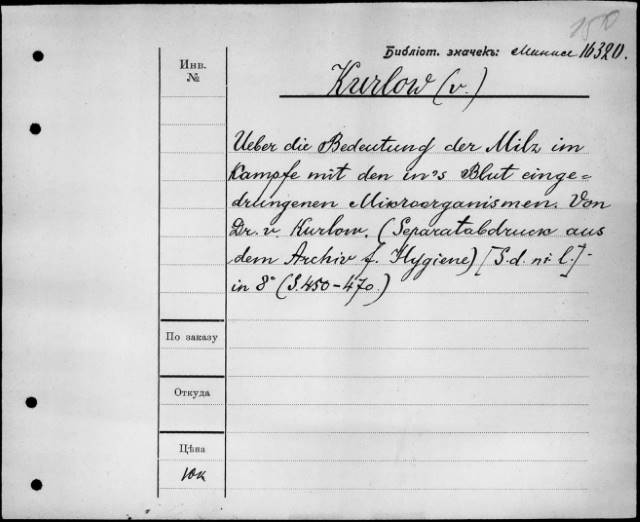 150
Библіот. значекъ: 16320.
Инв.
№
Kurlow (v.)
Ueber die Bedeutung der Milz im
Kampfe mit den in's Blut einge=
drungenen Mikroorganismen. Von
Dr. v. Kurlow. (Separatabdruck aus
dem Archiv f. Hygiene) [S. d. ni l.]-
in 8° (S. 450-470.)
По заказу
Откуда
Цѣна
10к